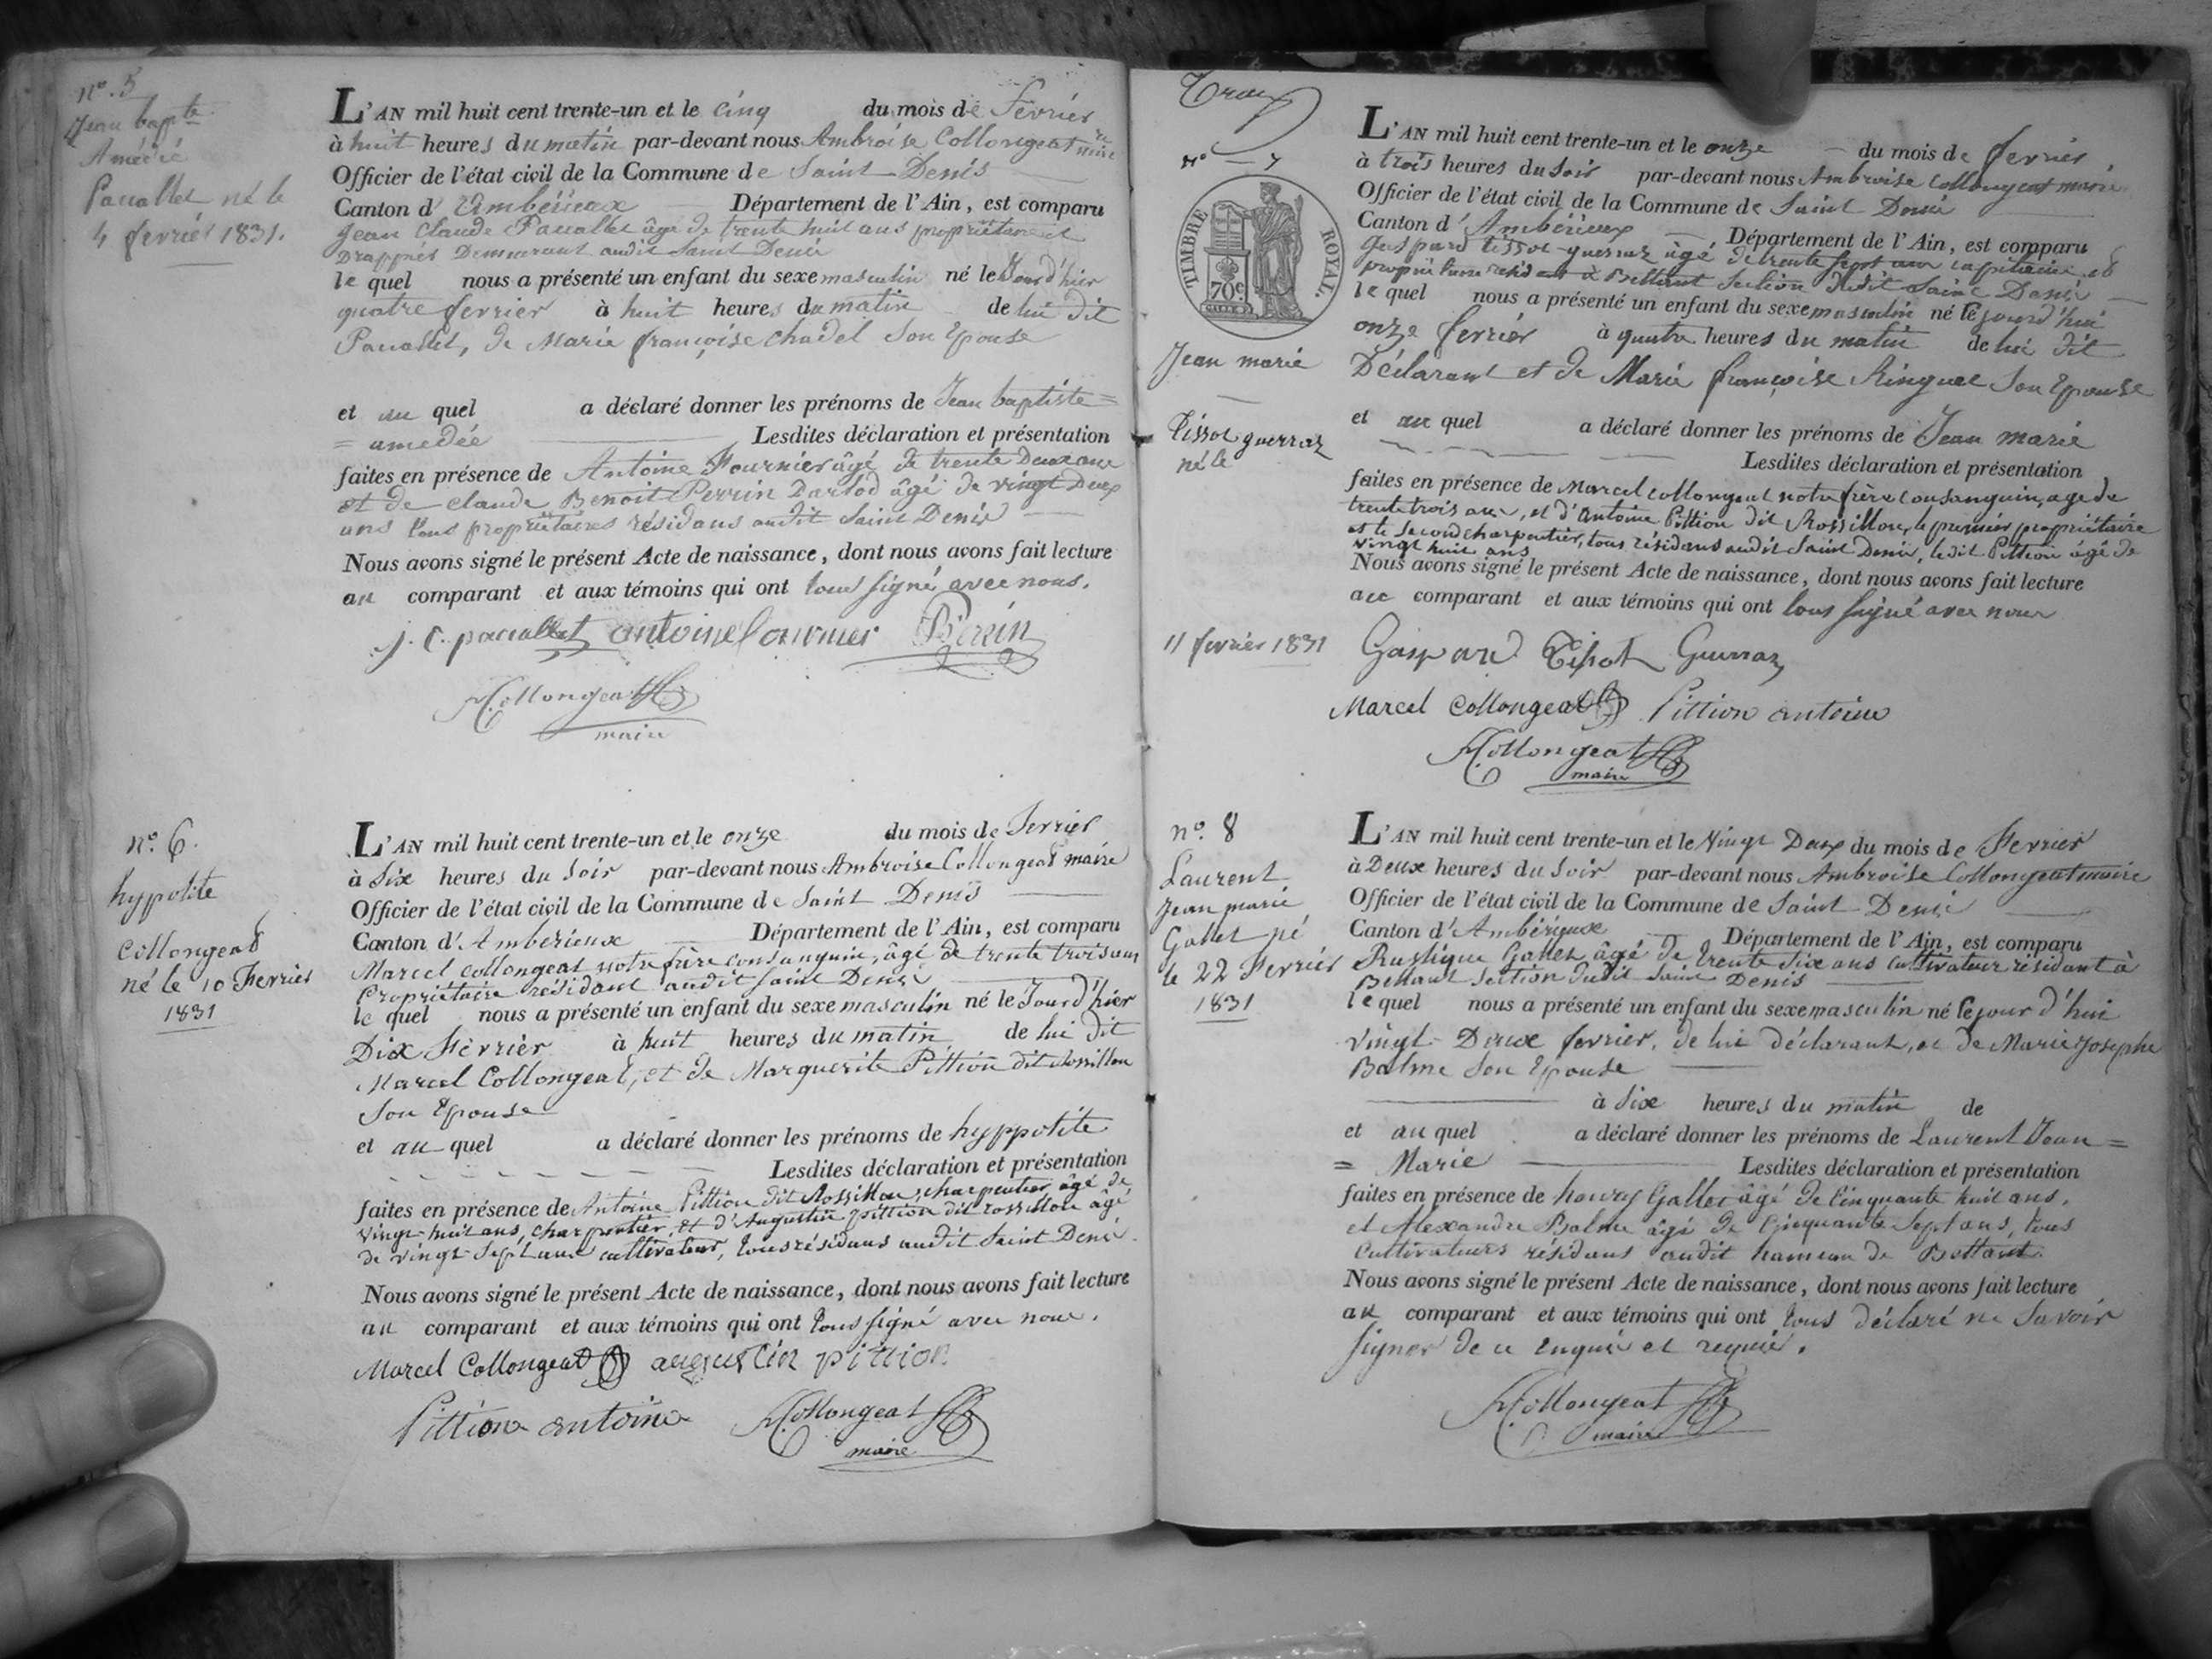 n°. 5
Jean bapte
Amédée
Pacallet né le
4 fevrier 1831.
L'AN mil huit cent trente-un et le cinq du mois de Févrièr
à huit heures du matin par-devant nous Ambroise Collongeat maire
Officier de l'état civil de la Commune de Saint Denis
Canton d'Ambérieux Département de l'Ain, est comparu
Jean Claude Pacallet âgé de trente huit ans propriétaire et
Drappier Demeurant audit Saint Denis
le quel nous a présenté un enfant du sexe masculin né le Jour d'hier
quatre fevrier à huit heures du matin de lui dit
Pacallet, de Marie françoise chadel Son Epouse
et au quel a déclaré donner les prénoms de Jean baptiste =
= amedée Lesdites déclaration et présentation
faites en présence de Antoine Fournier âgé de trente Deux ans
et de claude Benoit Perrin Darlod âgé de vingt Deux
ans tous propriétaires résidans audit Saint Denis
Nous avons signé le présent Acte de naissance, dont nous avons fait lecture
au comparant et aux témoins qui ont tous signé avec nous.
j. C. pacallet antoine fournier Perrin
A. Collongeat
maire
n°. 6.
hypolite
Collongeat
né le 10 Fevrier
1831
L'AN mil huit cent trente-un et le onze du mois de Fevrier
à Six heures du Soir par-devant nous Ambroise Collongeat maire
Officier de l'état civil de la Commune de Saint Denis
Canton d'Amberieux Département de l'Ain, est comparu
Marcel collongeat notre frère consanguin, âgé de trente trois ans
Propriétaire résidant audit Saint Denis
le quel nous a présenté un enfant du sexe masculin né le Jour d'hier
Dix Fevrièr à huit heures du matin de lui dit
Marcel Collongeat, et de Marguerite Pittion dit Rossillon
Son Epouse
et au quel a déclaré donner les prénoms de hyppolite
Lesdites déclaration et présentation
faites en présence de Antoine Pittion dit Rossillon, charpentier âgé de
vingt-huit ans, charpentier, et d'Augustin pittion dit rossillon âgé
de vingt-Sept ans cultivateur, tous résidans audit Saint Denis.
Nous avons signé le présent Acte de naissance, dont nous avons fait lecture
au comparant et aux témoins qui ont tous signé avec nous.
Marcel Collongeat augustin pittion
Pittion antoine A. Collongeat
maire
n° 7
TIMBRE ROYAL.
70c
Jean marie
Tissot guerraz
né le
11 fevrier 1831
L'AN mil huit cent trente-un et le onze du mois de fevrier
à trois heures du Soir par-devant nous Ambroise Collongeat maire
Officier de l'état civil de la Commune de Saint Denis
Canton d'Ambérieux Département de l'Ain, est comparu
Gaspard tissot-guerraz âgé de trente sept ans capitaine et
propriétaire résidant à Bettant Section dudit Saint Denis
le quel nous a présenté un enfant du sexe masculin né le jourd'hui
onze fevrier à quatre heures du matin de lui dit
Déclarant et de Marie françoise Ringuet Son Epouse
et au quel a déclaré donner les prénoms de Jean marie
Lesdites déclaration et présentation
faites en présence de Marcel collongeat notre frère consanguin, age de
trente trois ans, et d'antoine Pittion dit Rossillon, le premier propriétaire
et le Second charpentier, tous résidans audit Saint Denis, ledit Pittion âgé de
vingt huit ans
Nous avons signé le présent Acte de naissance, dont nous avons fait lecture
au comparant et aux témoins qui ont tous signé avec nous
Gaspard Tissot Guerraz
Marcel Collongeat Pittion antoine
A. Collongeat
maire
n°. 8
Laurent
Jean marie
Gallet né
le 22 Fevrier
1831
L'AN mil huit cent trente-un et le Vingt Deux du mois de Fevrier
à Deux heures du Soir par-devant nous Ambroise Collongeat maire
Officier de l'état civil de la Commune de Saint Denis
Canton d'Ambérieux Département de l'Ain, est comparu
Rustique Gallet, âgé de trente Six ans cultivateur résidant à
Bettant Section dudit Saint Denis
le quel nous a présenté un enfant du sexe masculin né le jour d'hui
vingt-Deux fevrier, de lui déclarant, et de Marie Josephe
Balme Son Epouse
à Six heures du matin de
et au quel a déclaré donner les prénoms de Laurent Jean =
= Marie Lesdites déclaration et présentation
faites en présence de Gallet âgé de Cinquante huit ans,
et Alexandre Balme âgé de Cinquante Sept ans, tous
cultivateurs résidans audit hameau de Bettant.
Nous avons signé le présent Acte de naissance, dont nous avons fait lecture
au comparant et aux témoins qui ont tous déclaré ne Savoir
signer de ce enquis et requis.
A. Collongeat
maire